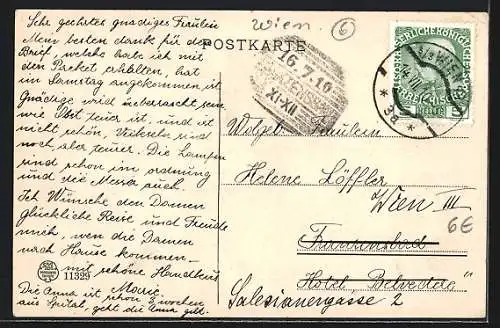 Sehr geehrtes gnädiges Fräulein
Mein besten dank für den
Brief, welche Karte ich mit
den Packet erhilten, hat
im Samstag angekommen ist
Gnädige wird ueberascht sein
wie Obst teuer ist, und ist
nicht schön, Veikseln sind
noch aber teuer. Die Lampen
sind schon im ordnung
und die Messer auch.
Ich Wünsche den Damen
glückliche Reise und Freude
mich, wen die Damen
nach Hause kommen
mit schöne Handkuss
Marie.
Die Anna ist schon 3 wochen
aus Spital, geht die Anna gut.
11399
Wien
6
POSTKARTE
16.7.10
XI-XII
WIEN
3a
Wolgeb. Fräulein
Helene Löffler
Wien III
6€
Franzensbad
Hotel „Belvedere“
Salesianergasse 2